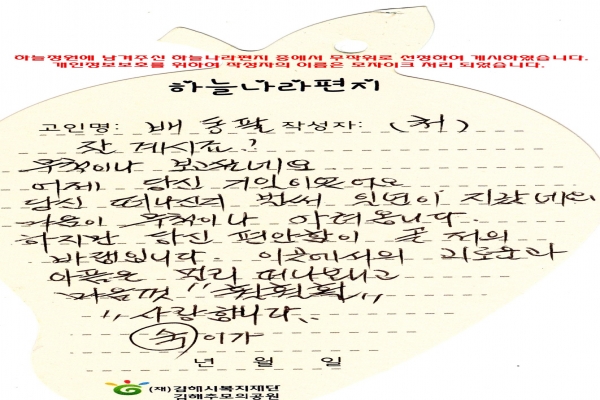 하늘정원에 남겨주신 하늘나라편지 중에서 무작위로 선정하여 게시하였습니다.
개인정보보호를 위하여 작성자의 이름은 모자이크 처리 되었습니다.
하늘나라편지
고인명: 배동팔 작성자: (처)
잘 계시죠?
무척이나 보고싶네요
어제 당신 기일이었어요
당신 떠나신지 벌써 일년이 지났네요
마음이 무척이나 아려옵니다.
하지만 당신 편안함이 곧 저의
바램입니다. 이곳에서의 괴로움과
아픔은 멀리 떠나보내고
마음껏 "훨훨훨"
"사랑합니다..
숙이가
년 월 일
(재)김해시복지재단
김해추모의공원